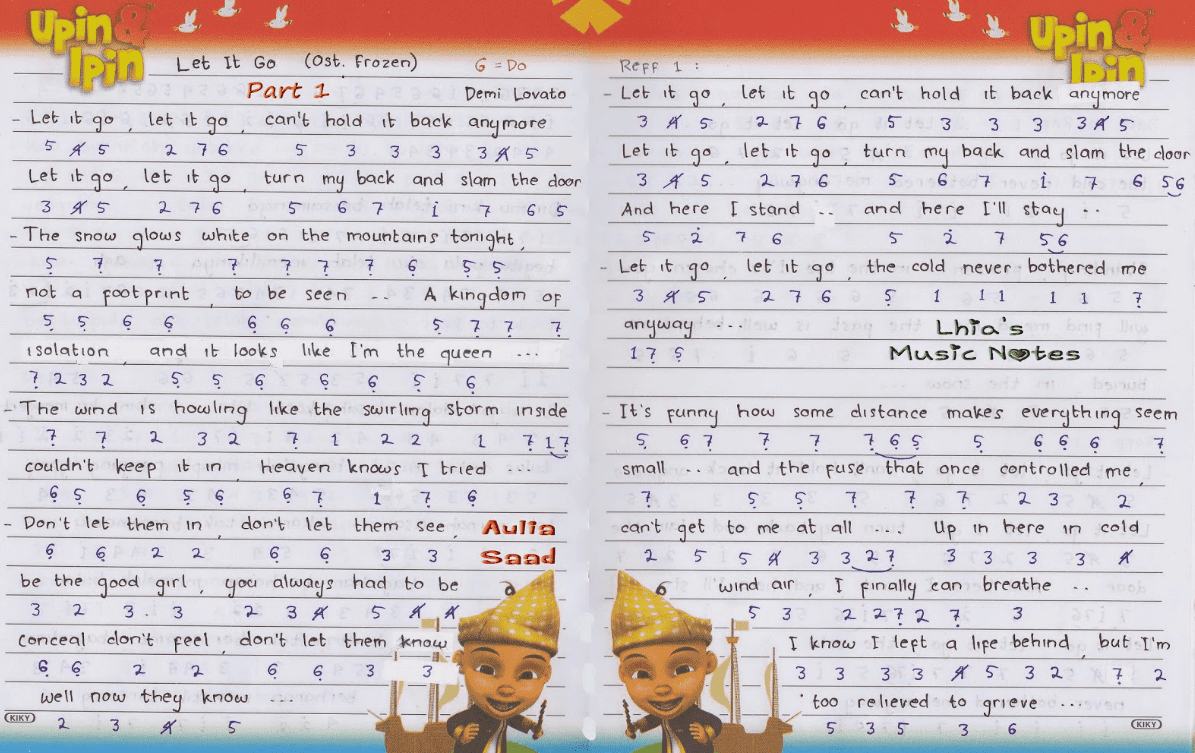 Upin & Ipin
Let It Go (Ost. Frozen) G = Do
Part 1 Demi Lovato
- Let it go, let it go, can't hold it back anymore
5 4̸ 5 2 7 6 5 3 3 3 3 4̸ 5
Let it go, let it go, turn my back and slam the door
3 4̸ 5 2 7 6 5 6 7 1̇ 7 6 5
- The snow glows white on the mountains tonight,
5̣ 7̣ 7̣ 7̣ 7̣ 7̣ 7̣ 6̣ 5̣ 5̣
not a footprint to be seen ... A kingdom of
5̣ 5̣ 6̣ 6̣ 6̣ 6̣ 6̣ 5̣ 7̣ 7̣ 7̣
isolation, and it looks like I'm the queen ...
7̣ 2 3 2 5̣ 5̣ 6̣ 6̣ 6̣ 5̣ 6̣
- The wind is howling like the swirling storm inside
7̣ 7̣ 2 3 2 7̣ 1 2 2 1 7̣ 1 7̣
couldn't keep it in, heaven knows I tried ...
6̣ 5̣ 6̣ 5̣ 6̣ 6̣ 7̣ 1 7̣ 6̣
- Don't let them in, don't let them see,
6̣ 6̣ 2 2 6̣ 6̣ 3 3
Aulia
Saad
be the good girl, you always had to be
3 2 3 . 3 2 3 4̸ 5 4̸ 4̸
conceal don't feel, don't let them know
6̣ 6̣ 2 2 6̣ 6̣ 3 3
well now they know ...
2 3 4̸ 5
KIKY
Upin & Ipin
Reff 1 :
- Let it go, let it go, can't hold it back anymore
3 4̸ 5 2 7 6 5 3 3 3 3 4̸ 5
Let it go, let it go, turn my back and slam the door
3 4̸ 5 2 7 6 5 6 7 1̇ 7 6 5 6
And here I stand .. and here I'll stay ..
5 2̇ 7 6 5 2̇ 7 5 6
- Let it go, let it go, the cold never bothered me
3 4̸ 5 2 7 6 5̣ 1 1 1 1 1 7̣
anyway ...
1 7̣ 5̣
Lhia's
Music Notes
- It's funny how some distance makes everything seem
5̣ 6̣ 7̣ 7̣ 7̣ 7̣ 6̣ 5̣ 5̣ 6̣ 6̣ 6̣ 7̣
small .. and the fuse that once controlled me
7̣ 5̣ 5̣ 7̣ 7̣ 7̣ 2 3 2
can't get to me at all ... Up in here in cold
2 5 5 4̸ 3 3 2 7̣ 3 3 3 3 4̸
wind air, I finally can breathe ..
5 3 2 2 7̣ 2 7̣ 3
I know I left a life behind, but I'm
3 3 3 3 4̸ 5 3 2 7̣ 2
too relieved to grieve ...
5 3 5 3 6
KIKY